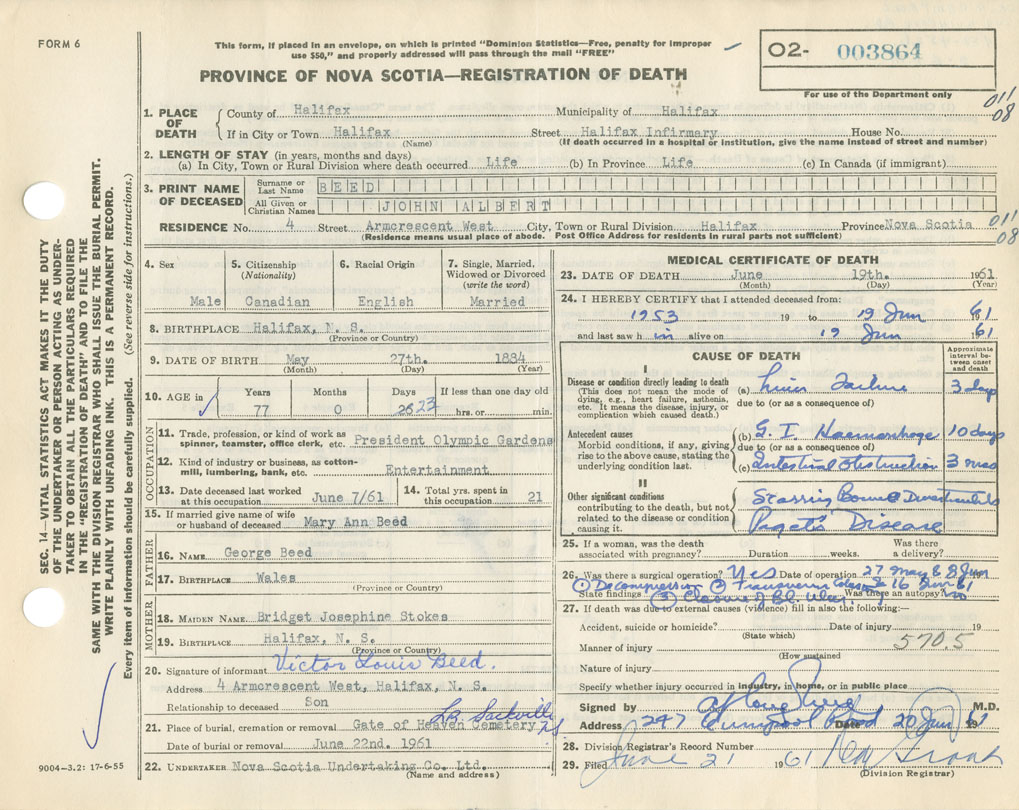 FORM 6
This form, if placed in an envelope, on which is printed "Dominion Statistics—Free, penalty for improper
use $50," and properly addressed will pass through the mail "FREE"
O2- 003864
For use of the Department only
PROVINCE OF NOVA SCOTIA—REGISTRATION OF DEATH
011
08
1. PLACE OF DEATH
County of Halifax Municipality of Halifax
If in City or Town Halifax Street Halifax Infirmary House No.
(Name) (If death occurred in a hospital or institution, give the name instead of street and number)
2. LENGTH OF STAY (in years, months and days)
(a) In City, Town or Rural Division where death occurred Life (b) In Province Life (c) In Canada (if immigrant)
3. PRINT NAME OF DECEASED
Surname or Last Name BEED
All Given or Christian Names JOHN ALBERT
RESIDENCE No. 4 Street Armcrescent West City, Town or Rural Division Halifax Province Nova Scotia
(Residence means usual place of abode. Post Office Address for residents in rural parts not sufficient)
011
08
4. Sex Male
5. Citizenship (Nationality) Canadian
6. Racial Origin English
7. Single, Married, Widowed or Divorced (write the word) Married
8. BIRTHPLACE Halifax, N. S.
(Province or Country)
9. DATE OF BIRTH May 27th. 1884
(Month) (Day) (Year)
10. AGE in Years Months Days If less than one day old
77 0 23 hrs. or min.
OCCUPATION
11. Trade, profession, or kind of work as spinner, teamster, office clerk, etc. President Olympic Gardens
12. Kind of industry or business, as cotton-mill, lumbering, bank, etc. Entertainment
13. Date deceased last worked at this occupation June 7/61
14. Total yrs. spent in this occupation 21
15. If married give name of wife or husband of deceased Mary Ann Beed
FATHER
16. NAME George Beed
17. BIRTHPLACE Wales
(Province or Country)
MOTHER
18. MAIDEN NAME Bridget Josephine Stokes
19. BIRTHPLACE Halifax, N. S.
(Province or Country)
20. Signature of informant Victor Louis Beed.
Address 4 Armcrescent West, Halifax, N. S.
Relationship to deceased Son
21. Place of burial, cremation or removal Gate of Heaven Cemetery Lr. Sackville NS
Date of burial or removal June 22nd. 1961
22. UNDERTAKER Nova Scotia Undertaking Co. Ltd.
(Name and address)
MEDICAL CERTIFICATE OF DEATH
23. DATE OF DEATH June 19th. 1961
(Month) (Day) (Year)
24. I HEREBY CERTIFY that I attended deceased from:
1953 19 to 19 Jun 1961
and last saw h im alive on 19 Jun 1961
CAUSE OF DEATH
Approximate interval between onset and death
I
Disease or condition directly leading to death
(This does not mean the mode of dying, e.g., heart failure, asthenia, etc. It means the disease, injury, or complication which caused death.)
(a) Liver Failure 3 days
due to (or as a consequence of)
Antecedent causes
Morbid conditions, if any, giving rise to the above cause, stating the underlying condition last.
(b) G. I. Haemorrhage 10 days
due to (or as a consequence of)
(c) Intestinal Obstruction 3 mos
II
Other significant conditions contributing to the death, but not related to the disease or condition causing it.
Paget's Disease
25. If a woman, was the death associated with pregnancy? Duration weeks. Was there a delivery?
26. Was there a surgical operation? Yes Date of operation 27 May & 8 Jun & 16 Jun 61
State findings ① Decompression ② Transverse ③ Closure of Was there an autopsy? no
27. If death was due to external causes (violence) fill in also the following:—
Accident, suicide or homicide? Date of injury 19
(State which)
Manner of injury 570.5
(How sustained)
Nature of injury
Specify whether injury occurred in industry, in home, or in public place
Signed by M.D.
Address 247 Dated 20 Jun 1961
28. Division Registrar's Record Number
29. Filed June 21 1961
(Division Registrar)
SEC. 14—VITAL STATISTICS ACT MAKES IT THE DUTY
OF THE UNDERTAKER OR PERSON ACTING AS UNDER-
TAKER TO OBTAIN ALL THE PARTICULARS REQUIRED
IN THE "REGISTRATION OF DEATH" AND TO FILE THE
SAME WITH THE DIVISION REGISTRAR WHO SHALL ISSUE THE BURIAL PERMIT.
WRITE PLAINLY WITH UNFADING INK. THIS IS A PERMANENT RECORD.
Every item of information should be carefully supplied. (See reverse side for instructions.)
9004-3.2: 17-6-55